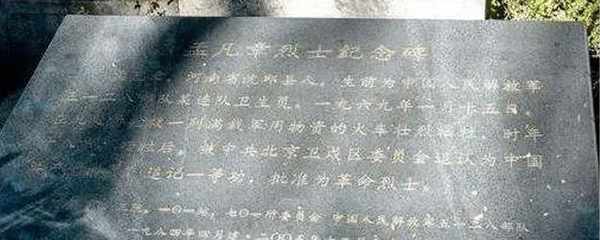 孟凡章烈士纪念碑
河南省沈邱县人，生前为中国人民解放军
五一三八部队某连队卫生员。一九六九年一月十五日，
一列满载军用物资的火车壮烈牺牲，时年
牲后，被中共北京卫戍区委员会追认为中国
追记一等功，批准为革命烈士。
一〇一站，七〇一所委员会 中国人民解放军五一三八部队
一九八四年四月建·二〇〇五年